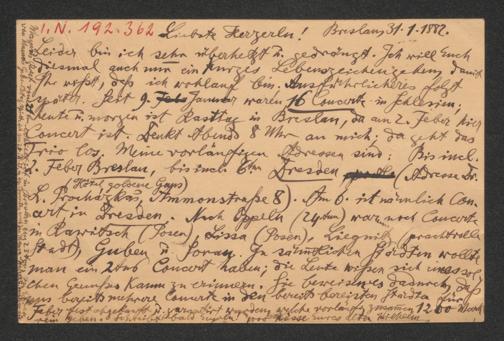 I.N. 192.362
Liebste Herzerln! Breslau 31.1.1882.
Leider bin ich sehr überhetzt u. gedrängt. Ich will Euch
diesmal auch nur ein kurzes Lebenszeichen geben, damit
Ihr wißt, daß ich wohlauf bin. Ausführlicheres folgt
später. Seit 9. Januar waren 16 Concerte in Schlesien.
Heute u. morgen ist Rasttag in Breslau, da am 2. Feber hier
Concert ist. Denkt Abends 8 Uhr an mich, da geht das
Trio los. Meine vorläufigen Adressen sind: Bis incl.
2. Feber Breslau, (Hôtel goldene Gans) bis incl. 6ten Dresden (Adresse Dr.
L. Prochazka, Ammonstraße 8). Am 6. ist nämlich Con-
cert in Dresden. Nach Oppeln (24ten) war noch Concerte
in Rawitsch (Posen), Lissa (Posen), Liegnitz (prachtvolle
Stadt), Guben u. Sorau. In sämmtlichen Städten wollte
man ein 2tes Concert haben; die Leute wissen sich eines sol-
chen Genusses kaum zu erinnern. Sie bewiesen es dadurch, daß
uns bereits mehrere Concerte in den bereits bereisten Städten für
Feber fest abgekauft u. garantirt wurden, welche vorläufig zusammen 1200 Mark